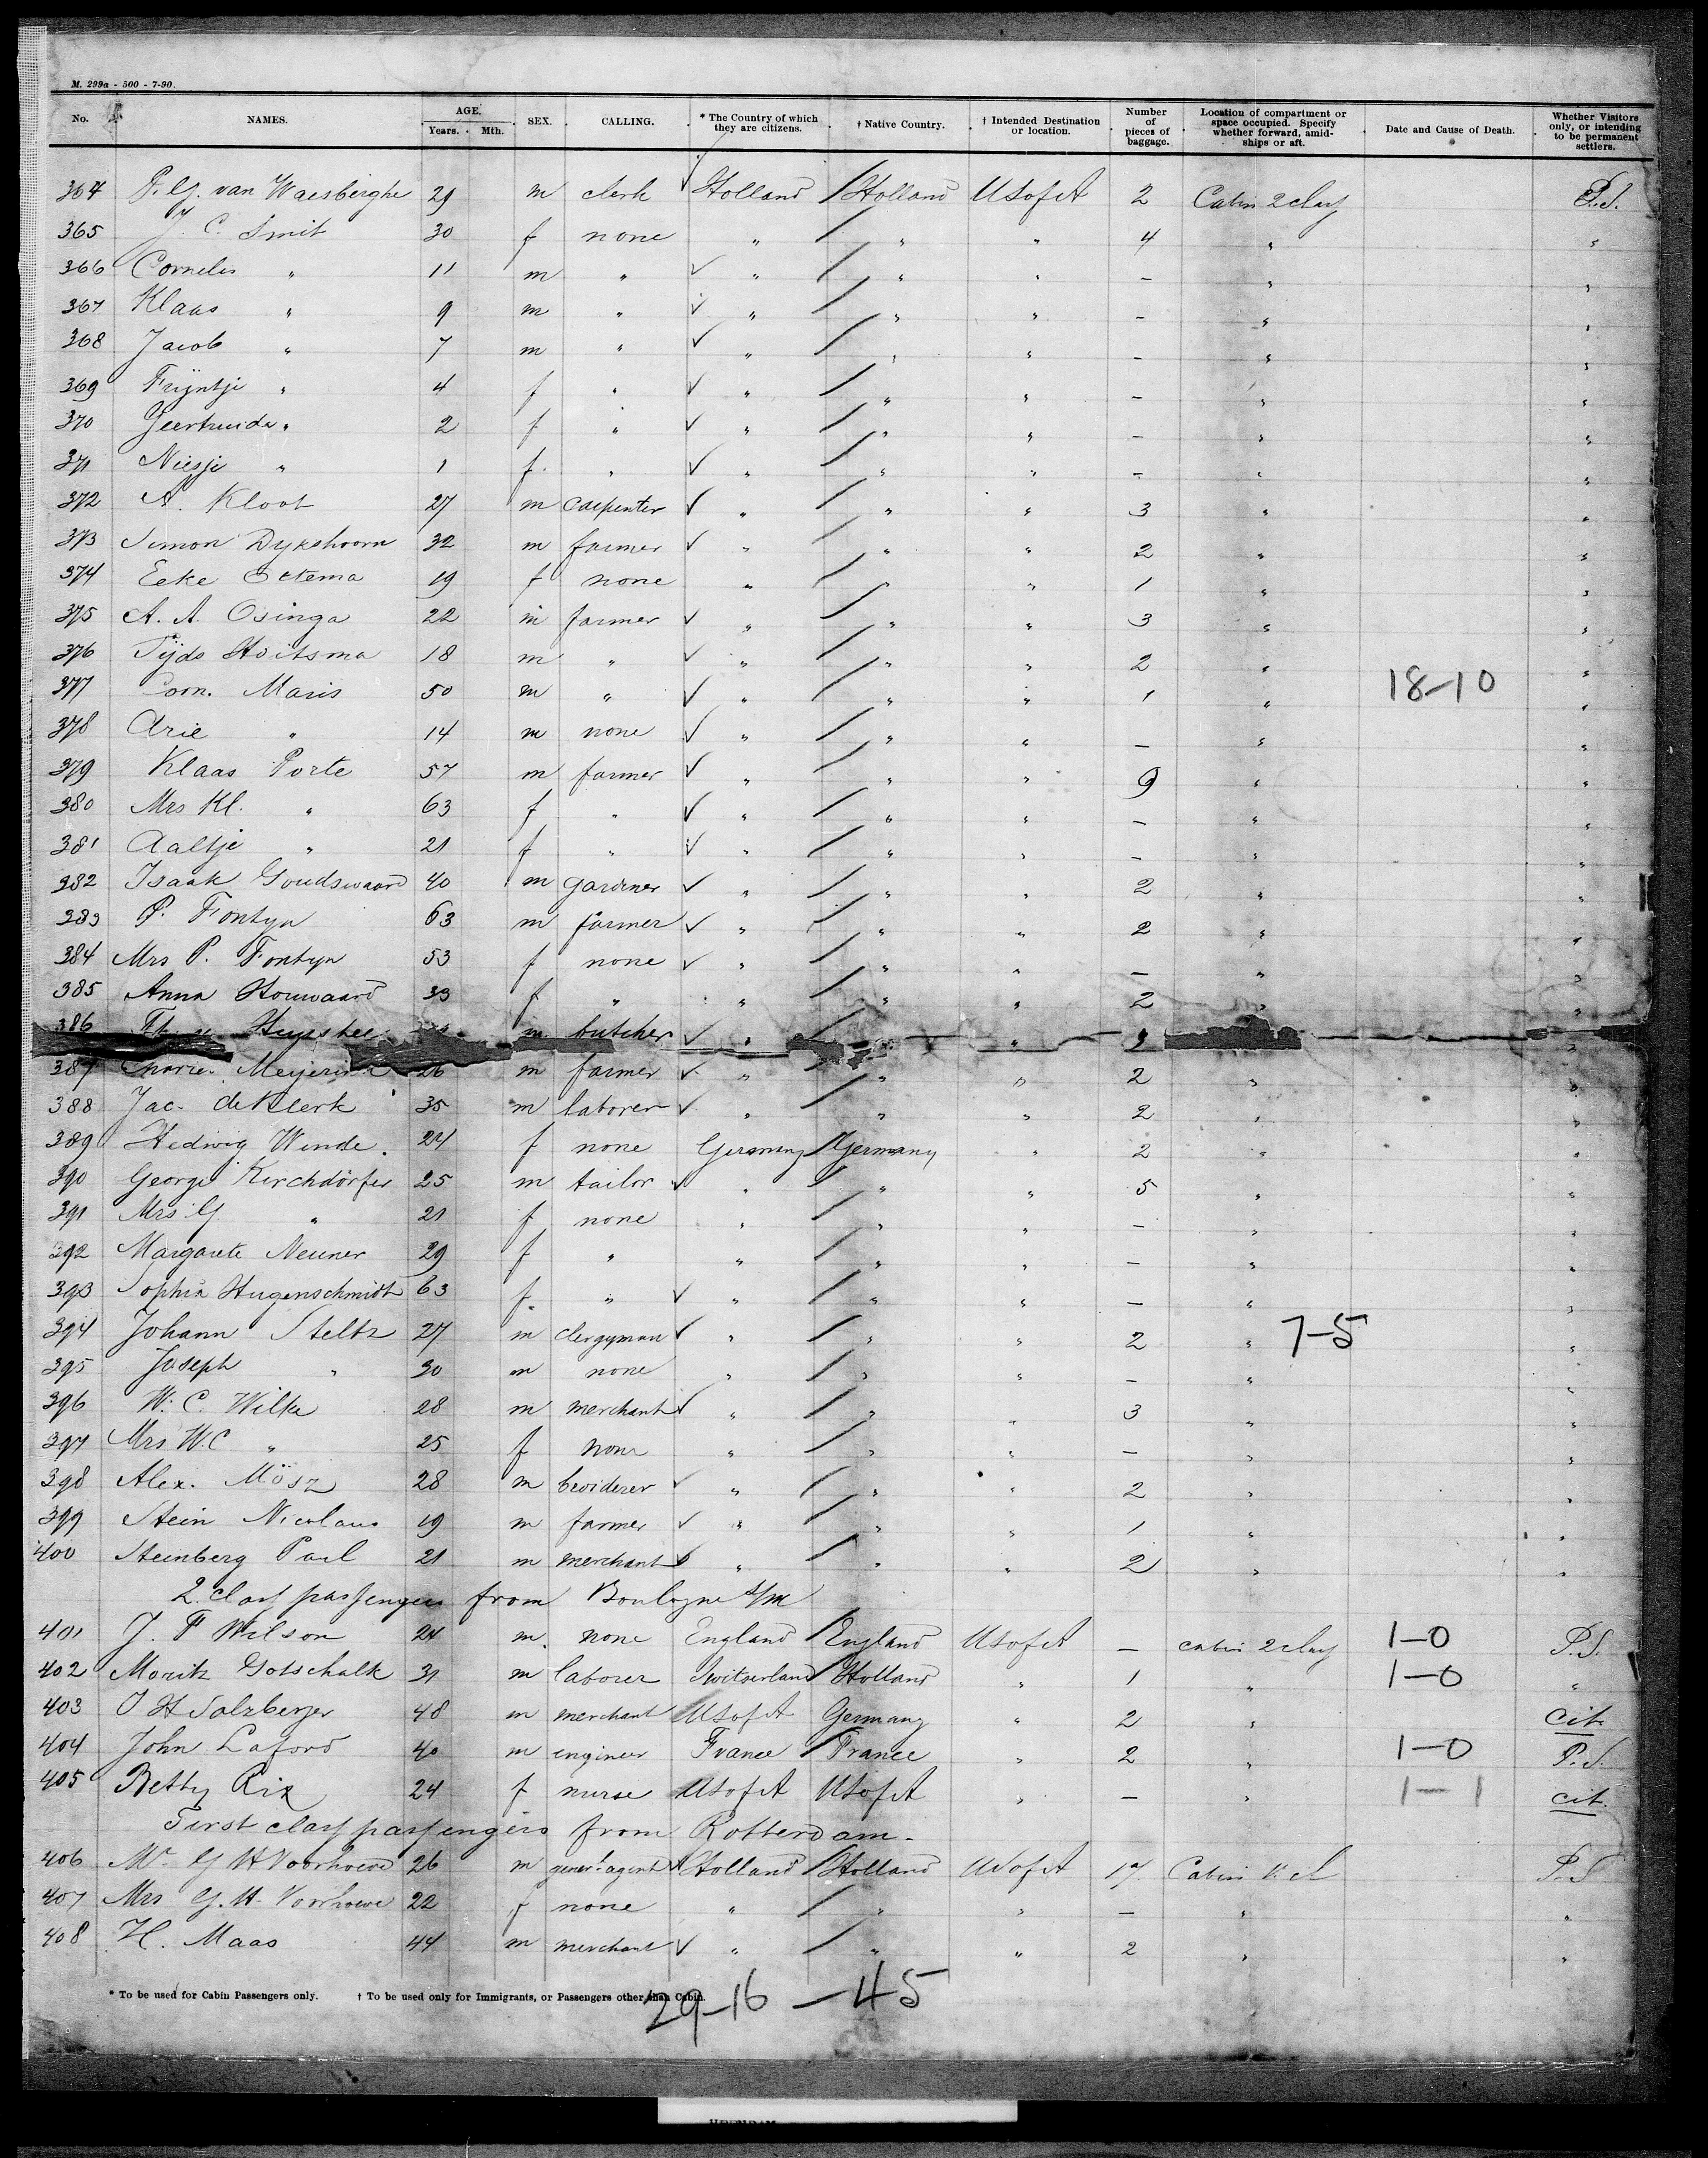 M. 299a - 500 - 7-90.
No. NAMES. AGE. Years. Mth. SEX. CALLING. * The Country of which they are citizens. † Native Country. † Intended Destination or location. Number of pieces of baggage. Location of compartment or space occupied. Specify whether forward, amidships or aft. Date and Cause of Death. Whether Visitors only, or intending to be permanent settlers.
364 P. G. van Waesberghe 29 m clerk Holland Holland USofA 2 Cabin 2 class P.S.
365 J. C. Smit 30 f none " " " 4 " "
366 Cornelis " 11 m " " " " - " "
367 Klaas " 9 m " " " " - " "
368 Jacob " 7 m " " " " - " "
369 Trijntje " 4 f " " " " - " "
370 Geertruida " 2 f " " " " - " "
371 Niesje " 1 f " " " " - " "
372 A. Kloot 27 m carpenter " " " 3 " "
373 Simon Dykshoorn 32 m farmer " " " 2 " "
374 Eeke 19 f none " " " 1 " "
375 A. A. Osinga 22 m farmer " " " 3 " "
376 Tijds Hoitsma 18 m " " " " 2 " "
377 Corn. Maris 50 m " " " " 1 " 18-10 "
378 Arie " 14 m none " " " - " "
379 Klaas Porte 57 m farmer " " " 9 " "
380 Mrs Kl. " 63 f " " " " - " "
381 Aaltje " 21 f " " " " - " "
382 Isaak Goudswaard 40 m gardiner " " " 2 " "
383 P. Fontyn 63 m farmer " " " 2 " "
384 Mrs P. Fontyn 53 f none " " " - " "
385 Anna Houwaard 33 f " " " " 2 " "
386 m butcher " "
387 26 m farmer " " " 2 " "
388 Jac. de Klerk 35 m laborer " " " 2 " "
389 Hedwig Wende. 24 f none Germany Germany " 2 " "
390 Georg Kirchdörfer 25 m tailor " " " 5 " "
391 Mrs G. " 21 f none " " " - " "
392 Margarete Neuner 29 f " " " " - " "
393 Sophia Hugenschmidt 63 f " " " " - " "
394 Johann Steltz 27 m clergyman " " " 2 " 7-5 "
395 Joseph " 30 m none " " " - " "
396 W. C. Wilke 28 m merchant " " " 3 " "
397 Mrs W.C " 25 f none " " " - " "
398 Alex. Mösz 28 m broiderer " " " 2 " "
399 Stein Nicolaus 19 m farmer " " " 1 " "
400 Steinberg Paul 21 m merchant " " " 2 " "
2. class passengers from Boulogne s/m
401 J. F Wilson 24 m. none England England USofA - cabin 2 class 1-0 P.S.
402 Moritz Gotschalk 31 m laborer Switserland Holland " 1 " 1-0 "
403 O H Salzberger 48 m merchant USofA Germany " 2 " cit.
404 John Laford 40 m engineer France France " 2 " 1-0 P.S.
405 Betty Rix 24 f nurse USofA USofA " - " 1-1 cit.
First class passengers from Rotterdam -
406 Mr G H Voorhoeve 26 m generl agent Holland Holland USofA 17 Cabin 1. cl P.S
407 Mrs G. H. Voorhoeve 22 f none " " " - " "
408 H. Maas 44 m merchant " " " 2 " "
* To be used for Cabin Passengers only. † To be used only for Immigrants, or Passengers other than Cabin.
29-16 - 45